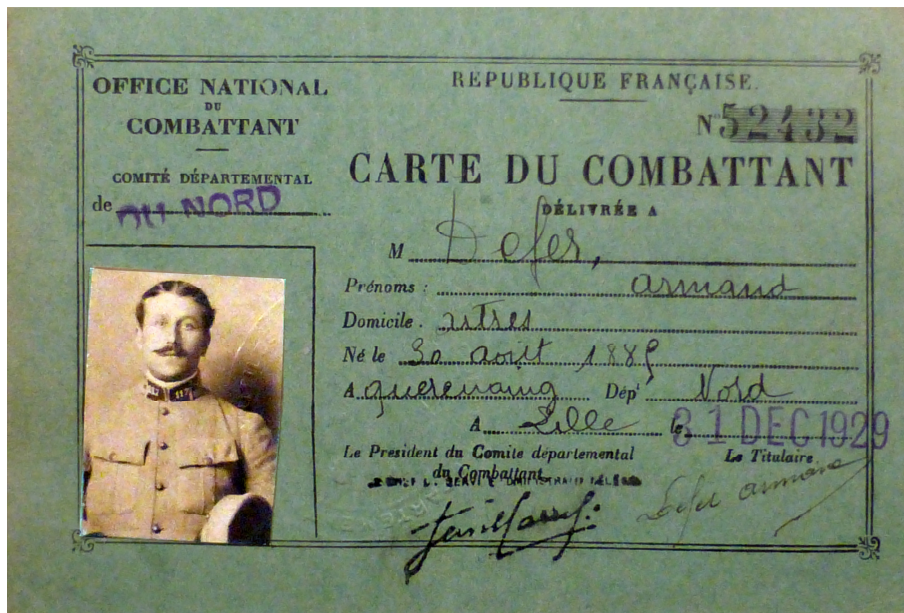 OFFICE NATIONAL
DU
COMBATTANT
COMITÉ DÉPARTEMENTAL
de DU NORD
REPUBLIQUE FRANÇAISE.
N° 52432
CARTE DU COMBATTANT
DÉLIVRÉE A
M Defer,
Prénoms : Armand
Domicile . artres
Né le 30 août 188
A querenaing Dépt Nord
A Lille le, 31 DEC 1929
Le Président du Comite départemental
du Combattant
Le Titulaire
Defer armand